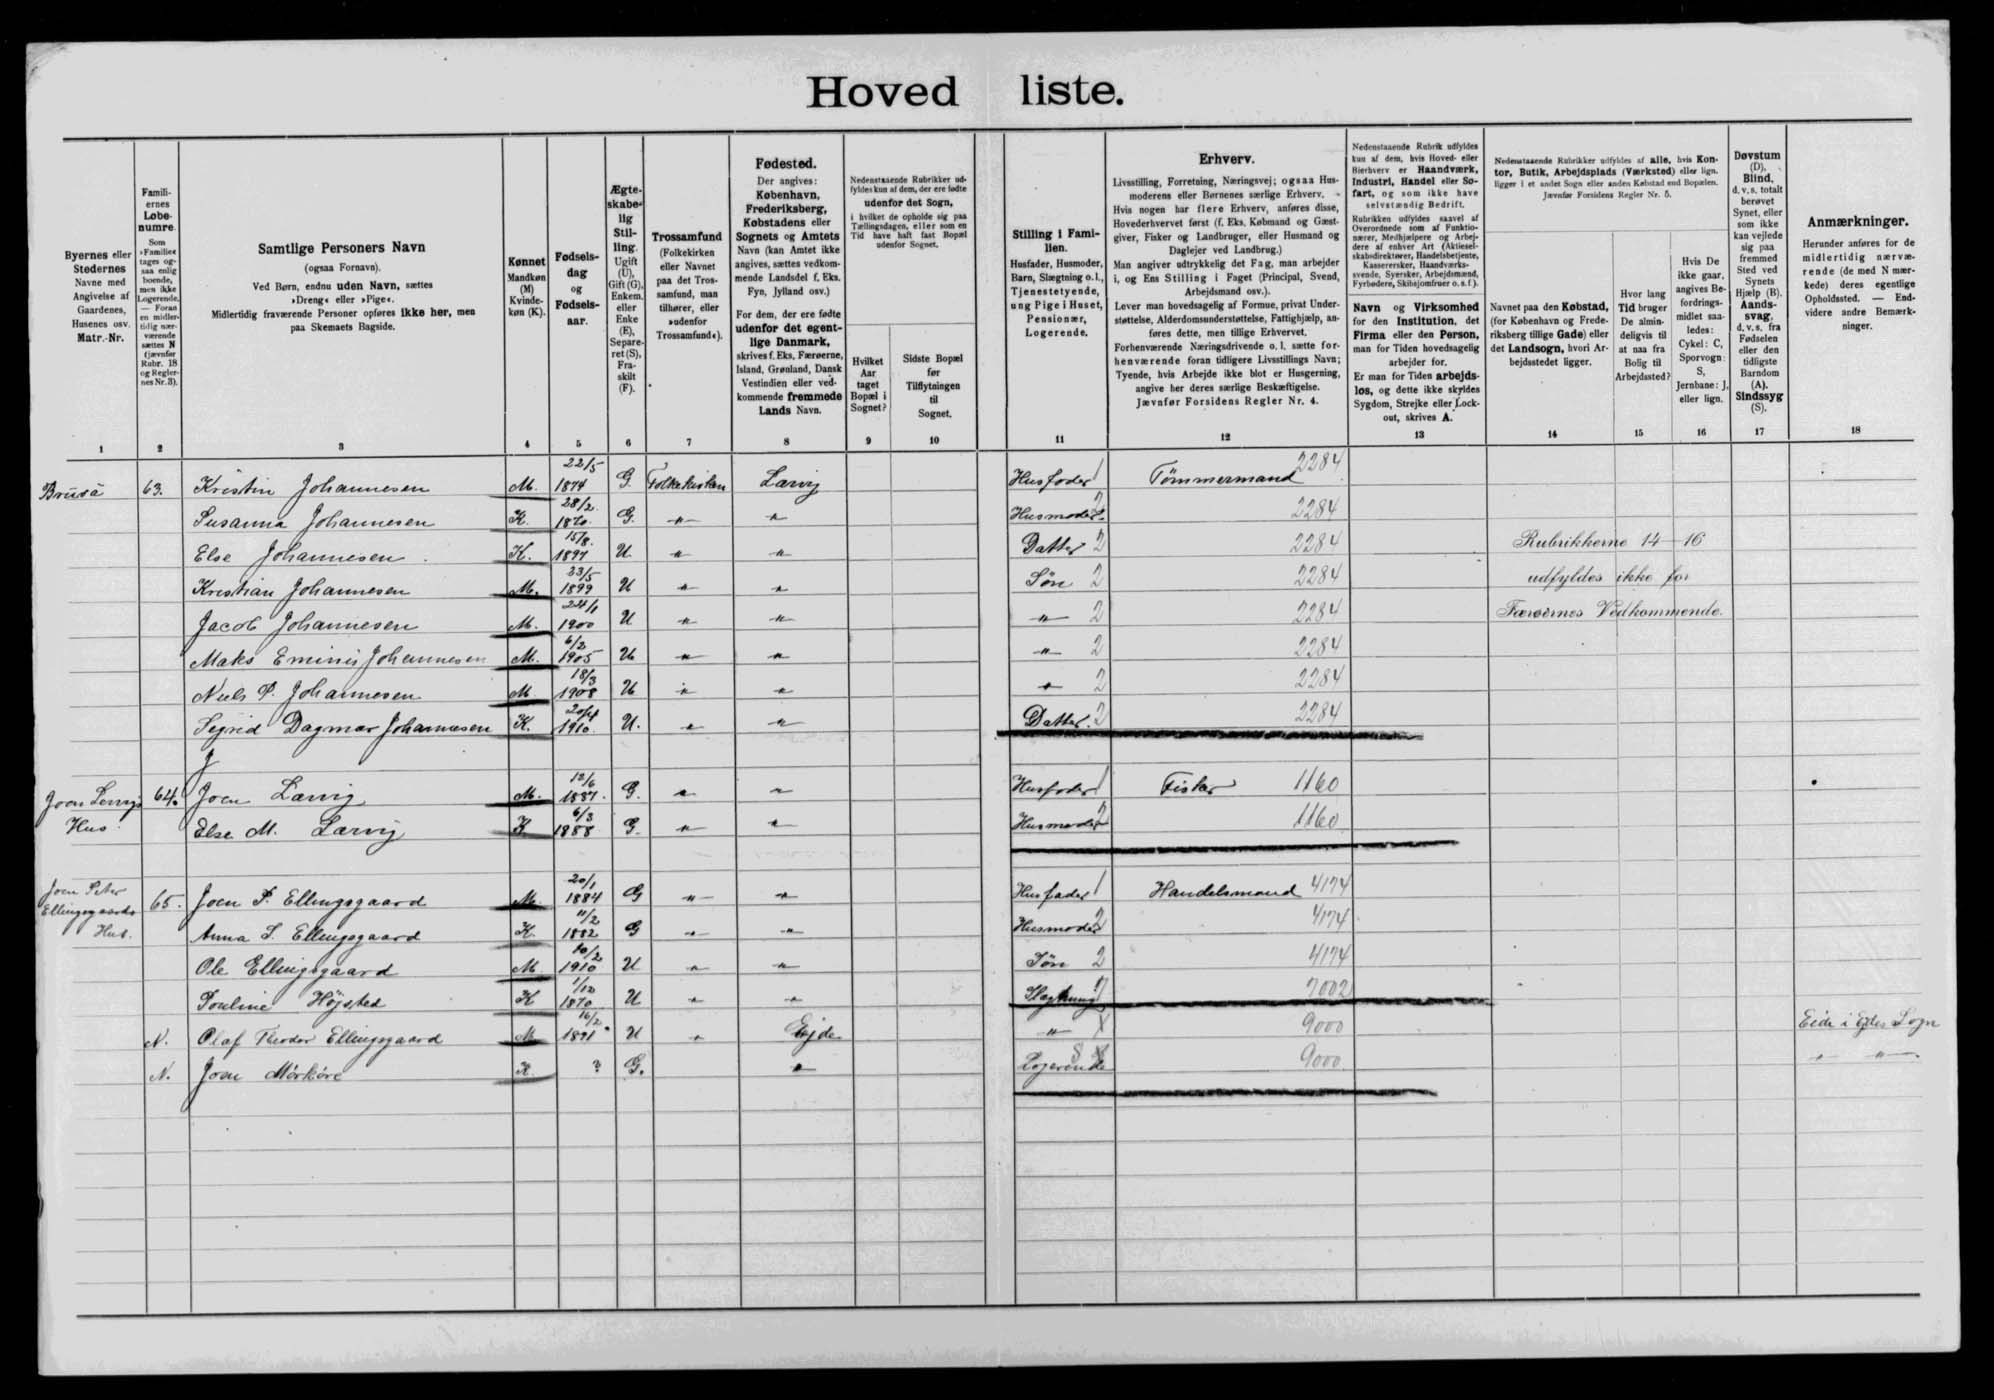 Hoved liste.
Byernes eller Stedernes Navne med Angivelse af Gaardenes, Husenes osv. Matr.-Nr.
Familiernes Løbenumre. Som »Familie« tages ogsaa enlig boende, men ikke Logerende. — Foran en midlertidig nærværende sættes N (jævnfør Rubr. 18 og Reglernes Nr. 3).
Samtlige Personers Navn
(ogsaa Fornavn).
Ved Børn, endnu uden Navn, sættes »Dreng« eller »Pige«.
Midlertidig fraværende Personer opføres ikke her, men paa Skemaets Bagside.
Kønnet
Mandkøn (M) Kvindekøn (K).
Fødselsdag og Fødselsaar.
Ægteskabelig Stilling. Ugift (U), Gift (G), Enkem. eller Enke (E), Separeret (S), Fraskilt (F).
Trossamfund
(Folkekirken eller Navnet paa det Trossamfund, man tilhører, eller »udenfor Trossamfund«).
Fødested.
Der angives: København, Frederiksberg, Købstadens eller Sognets og Amtets Navn (kan Amtet ikke angives, sættes vedkommende Landsdel f. Eks. Fyn, Jylland osv.)
For dem, der ere fødte udenfor det egentlige Danmark, skrives f. Eks. Færøerne, Island, Grønland, Dansk Vestindien eller vedkommende fremmede Lands Navn.
Nedenstaaende Rubrikker udfyldes kun af dem, der ere fødte udenfor det Sogn, i hvilket de opholde sig paa Tællingsdagen, eller som en Tid have haft fast Bopæl udenfor Sognet.
Hvilket Aar taget Bopæl i Sognet?
Sidste Bopæl før Tilflytningen til Sognet.
Stilling i Familien.
Husfader, Husmoder, Barn, Slægtning o. l., Tjenestetyende, ung Pige i Huset, Pensionær, Logerende.
Erhverv.
Livsstilling, Forretning, Næringsvej; ogsaa Husmoderens eller Børnenes særlige Erhverv.
Hvis nogen har flere Erhverv, anføres disse, Hovederhvervet først (f. Eks. Købmand og Gæstgiver, Fisker og Landbruger, eller Husmand og Daglejer ved Landbrug.)
Man angiver udtrykkelig det Fag, man arbejder i, og Ens Stilling i Faget (Principal, Svend, Arbejdsmand osv.).
Lever man hovedsagelig af Formue, privat Understøttelse, Alderdomsunderstøttelse, Fattighjælp, anføres dette, men tillige Erhvervet.
Forhenværende Næringsdrivende o. l. sætte forhenværende foran tidligere Livsstillings Navn; Tyende, hvis Arbejde ikke blot er Husgerning, angive her deres særlige Beskæftigelse.
Jævnfør Forsidens Regler Nr. 4.
Nedenstaaende Rubrik udfyldes kun af dem, hvis Hoved- eller Bierhverv er Haandværk, Industri, Handel eller Søfart, og som ikke have selvstændig Bedrift.
Rubrikken udfyldes saavel af Overordnede som af Funktionærer, Medhjælpere og Arbejdere af enhver Art (Aktieselskabsdirektører, Handelsbetjente, Kasserersker, Haandværkssvende, Syersker, Arbejdsmænd, Fyrbødere, Skibsjomfruer o. s. f.).
Navn og Virksomhed for den Institution, det Firma eller den Person, man for Tiden hovedsagelig arbejder for.
Er man for Tiden arbejdsløs, og dette ikke skyldes Sygdom, Strejke eller Lockout, skrives A.
Nedenstaaende Rubrikker udfyldes af alle, hvis Kontor, Butik, Arbejdsplads (Værksted) eller lign. ligger i et andet Sogn eller anden Købstad end Bopælen. Jævnfør Forsidens Regler Nr. 5.
Navnet paa den Købstad, (for København og Frederiksberg tillige Gade) eller det Landsogn, hvori Arbejdsstedet ligger.
Hvor lang Tid bruger De almindeligvis til at naa fra Bolig til Arbejdssted?
Hvis De ikke gaar, angives Befordringsmidlet saaledes: Cykel: C, Sporvogn: S, Jernbane: J, eller lign.
Døvstum (D), Blind, d. v. s. totalt berøvet Synet, eller som ikke kan vejlede sig paa fremmed Sted ved Synets Hjælp (B). Aandssvag, d. v. s. fra Fødselen eller den tidligste Barndom (A). Sindssyg (S).
Anmærkninger.
Herunder anføres for de midlertidig nærværende (de med N mærkede) deres egentlige Opholdssted. — Endvidere andre Bemærkninger.
1 2 3 4 5 6 7 8 9 10 11 12 13 14 15 16 17 18
Bruså 63. Kristin Johannesen M. 22/5 1874 G. Folkekirken Larvig Husfader 1 Tømmermand 2284
Susanna Johannesen K. 28/2 1870. G. " " Husmoder 2 2284
Else Johannesen K. 15/8 1897 U. " " Datter 2 2284 Rubrikkerne 14—16
Kristian Johannesen M. 23/5 1899 U " " Søn 2 2284 udfyldes ikke for
Jacob Johannesen M. 24/1 1900 U " " " 2 2284 Færøernes Vedkommende.
Maks Eminis Johannesen M. 6/2 1905 U " " " 2 2284
Niels P. Johannesen M 18/3 1908 U " " " 2 2284
Sigrid Dagmar Johannesen K. 20/4 1910. U. " " Datter 2 2284
Joen Larvigs Hus. 64. Joen Larvig M. 12/6 1887. G. " " Husfader 1 Fisker 1160
Else M. Larvig K 6/3 1888 G. " " Husmoder 2 1160
Joen Peter Ellingsgaards Hus. 65. Joen P. Ellingsgaard M. 20/1 1884 G " " Husfader 1 Handelsmand 4174
Anna S. Ellingsgaard K. 11/2 1882 G " " Husmoder 2 4174
Ole Ellingsgaard M 10/2 1910 U " " Søn 2 4174
Pouline Højsted K 1/12 1870 U " " Slægtning 7002
N. Olaf Theodor Ellingsgaard M 16/2 1891 U " Ejde " 9000 Eide i Ejdes Sogn
N. Joen Mørkøre K ? G. " Logerende 9000 " "